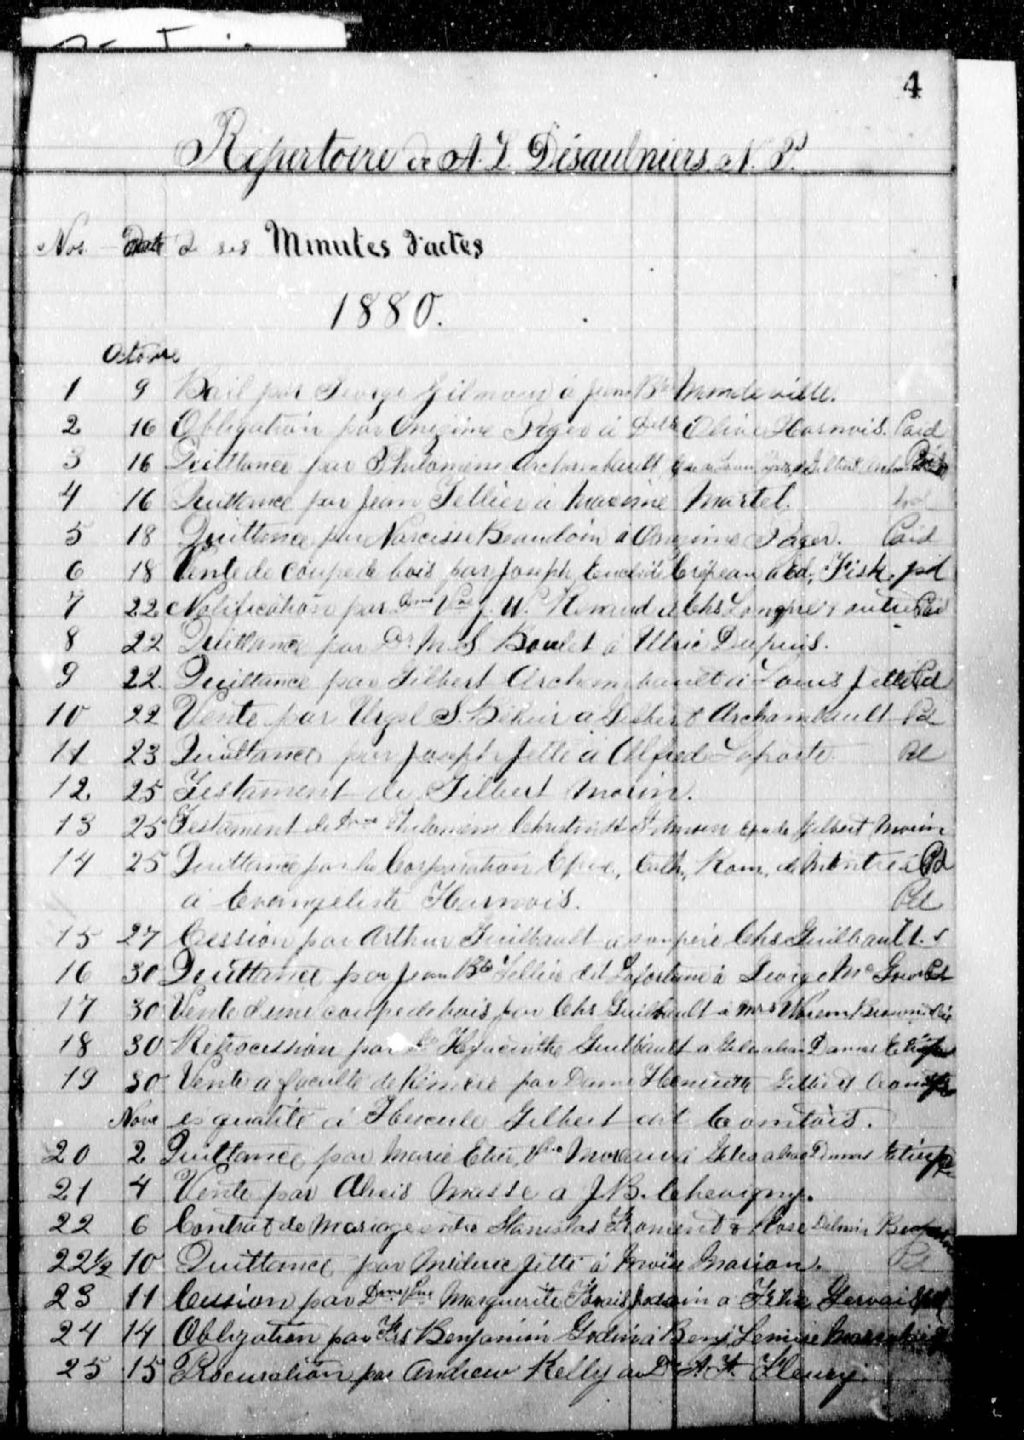 4
Répertoire de A. L. Désaulniers N. P.
Nos Date de ses Minutes d'actes
1880.
Octobre
1 9 Bail par George Gilmour à Jean Bte Mondeville.
2 16 Obligation par Onezime Piger à Delle Olivine Harnois. Paid
3 16 Quittance par Philomène Archambault
4 16 Quittance par Jean Tellier à Maxime Martel.
5 18 Quittance par Narcisse Beaudoin à Onezime Paid
6 18 Vente de coupe de bois par Joseph Crépeau à Ed. Fisk. pd
7 22 Notification par Dame Vve J. W. à Chs & autres Pd
8 22 Quittance par Dr M. S. Boulet à Ulric Dupuis.
9 22 Quittance par Gilbert Archambault à Louis Jetté Pd
10 22 Vente par Urgel à Gilbert Archambault Pd
11 23 Quittance par Joseph Jetté à Alfred Laporte Pd
12 25 Testament de Gilbert Morin.
13 25 Testament de Dame Philomène Christin dit St Amour épse de Gilbert Morin
14 25 Quittance par la Corporation Epis. Cath. Rom. de Montréal Pd
à Evangeliste Harnois. Pd
15 27 Cession par Arthur Guilbault à son père Chs Guilbault.
16 30 Quittance par Jean Bte Tellier dit Lafortune à George Mc
17 30 Vente d'une coupe de bois par Chs Guilbault à
18 30 Rétrocession par Hyacinthe Guilbault à
19 30 Vente à faculté de Réméré par Dame Henriette
Nove es qualité à Hercule Gilbert dit Comtois.
20 2 Quittance par Marie Etier, Vve à
21 4 Vente par Alexis Masse à J. B. Chevigny.
22 6 Contrat de Mariage entre Stanislas Froment & Rose Delmia
22½ 10 Quittance par Médéric Jetté à Moïse Marion. Pd
23 11 Cession par Dame Vve Marguerite à Félix Gervais
24 14 Obligation par Frs Benjamin à Benj Lemire
25 15 Procuration par Andrew Kelly au Dr A. H. Fleury.